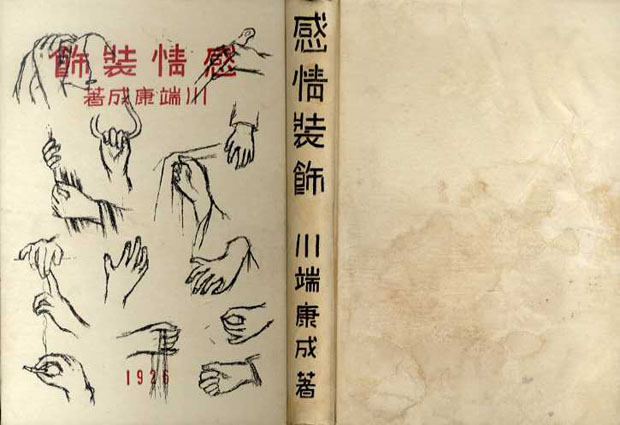 感情装飾
川端康成著
1926
感情装飾
川端康成著